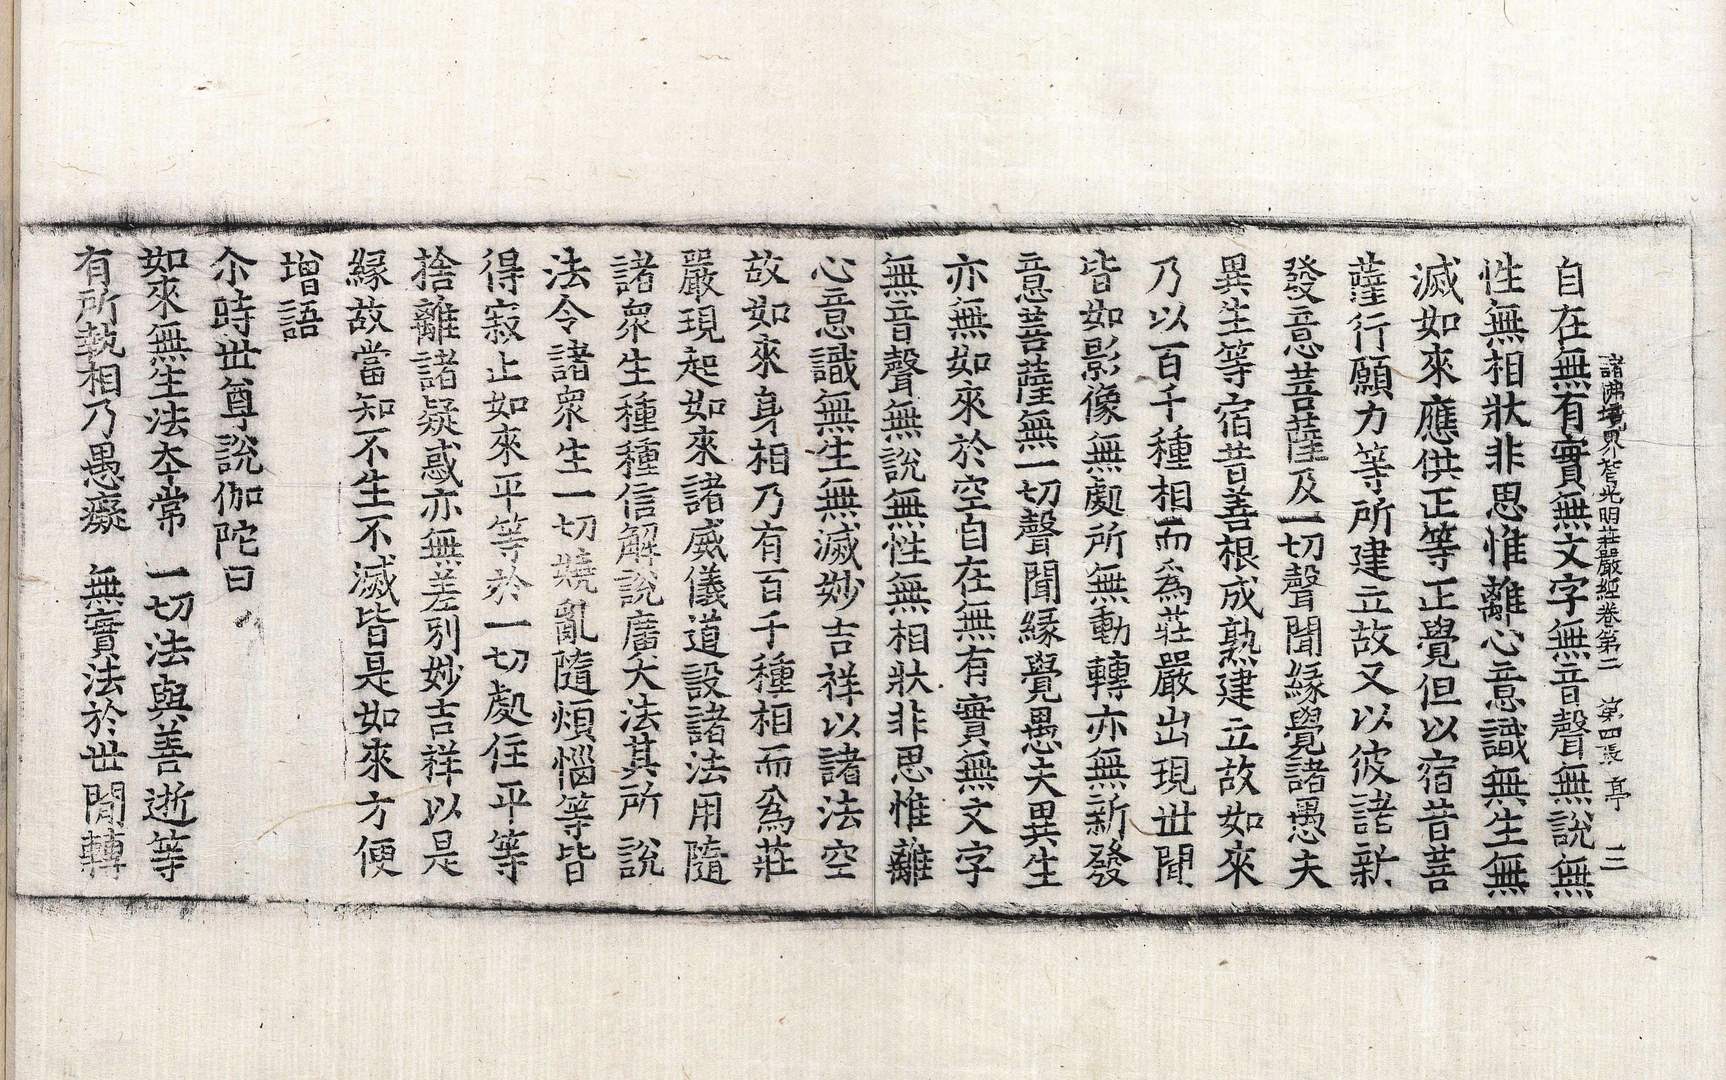 諸佛境界智光明莊嚴經卷第二　第四張　亭　三
自在無有實無文字無音聲無說無
性無相狀非思惟離心意識無生無
滅如來應供正等正覺但以宿昔菩
薩行願力等所建立故又以彼諸新
發意菩薩及一切聲聞緣覺諸愚夫
異生等宿昔善根成熟建立故如來
乃以百千種相而為莊嚴出現世間
皆如影像無處所無動轉亦無新發
意菩薩無一切聲聞緣覺愚夫異生
亦無如來於空自在無有實無文字
無音聲無說無性無相狀非思惟離
心意識無生無滅妙吉祥以諸法空
故如來身相乃有百千種相而為莊
嚴現起如來諸威儀道設諸法用隨
諸衆生種種信解說廣大法其所說
法令諸衆生一切嬈亂隨煩惱等皆
得寂止如來平等於一切處住平等
捨離諸疑惑亦無差別妙吉祥以是
緣故當知不生不滅皆是如來方便
增語
尒時世尊說伽陀曰
如來無生法本常　一切法與善逝等
有所執相乃愚癡　無實法於世間轉